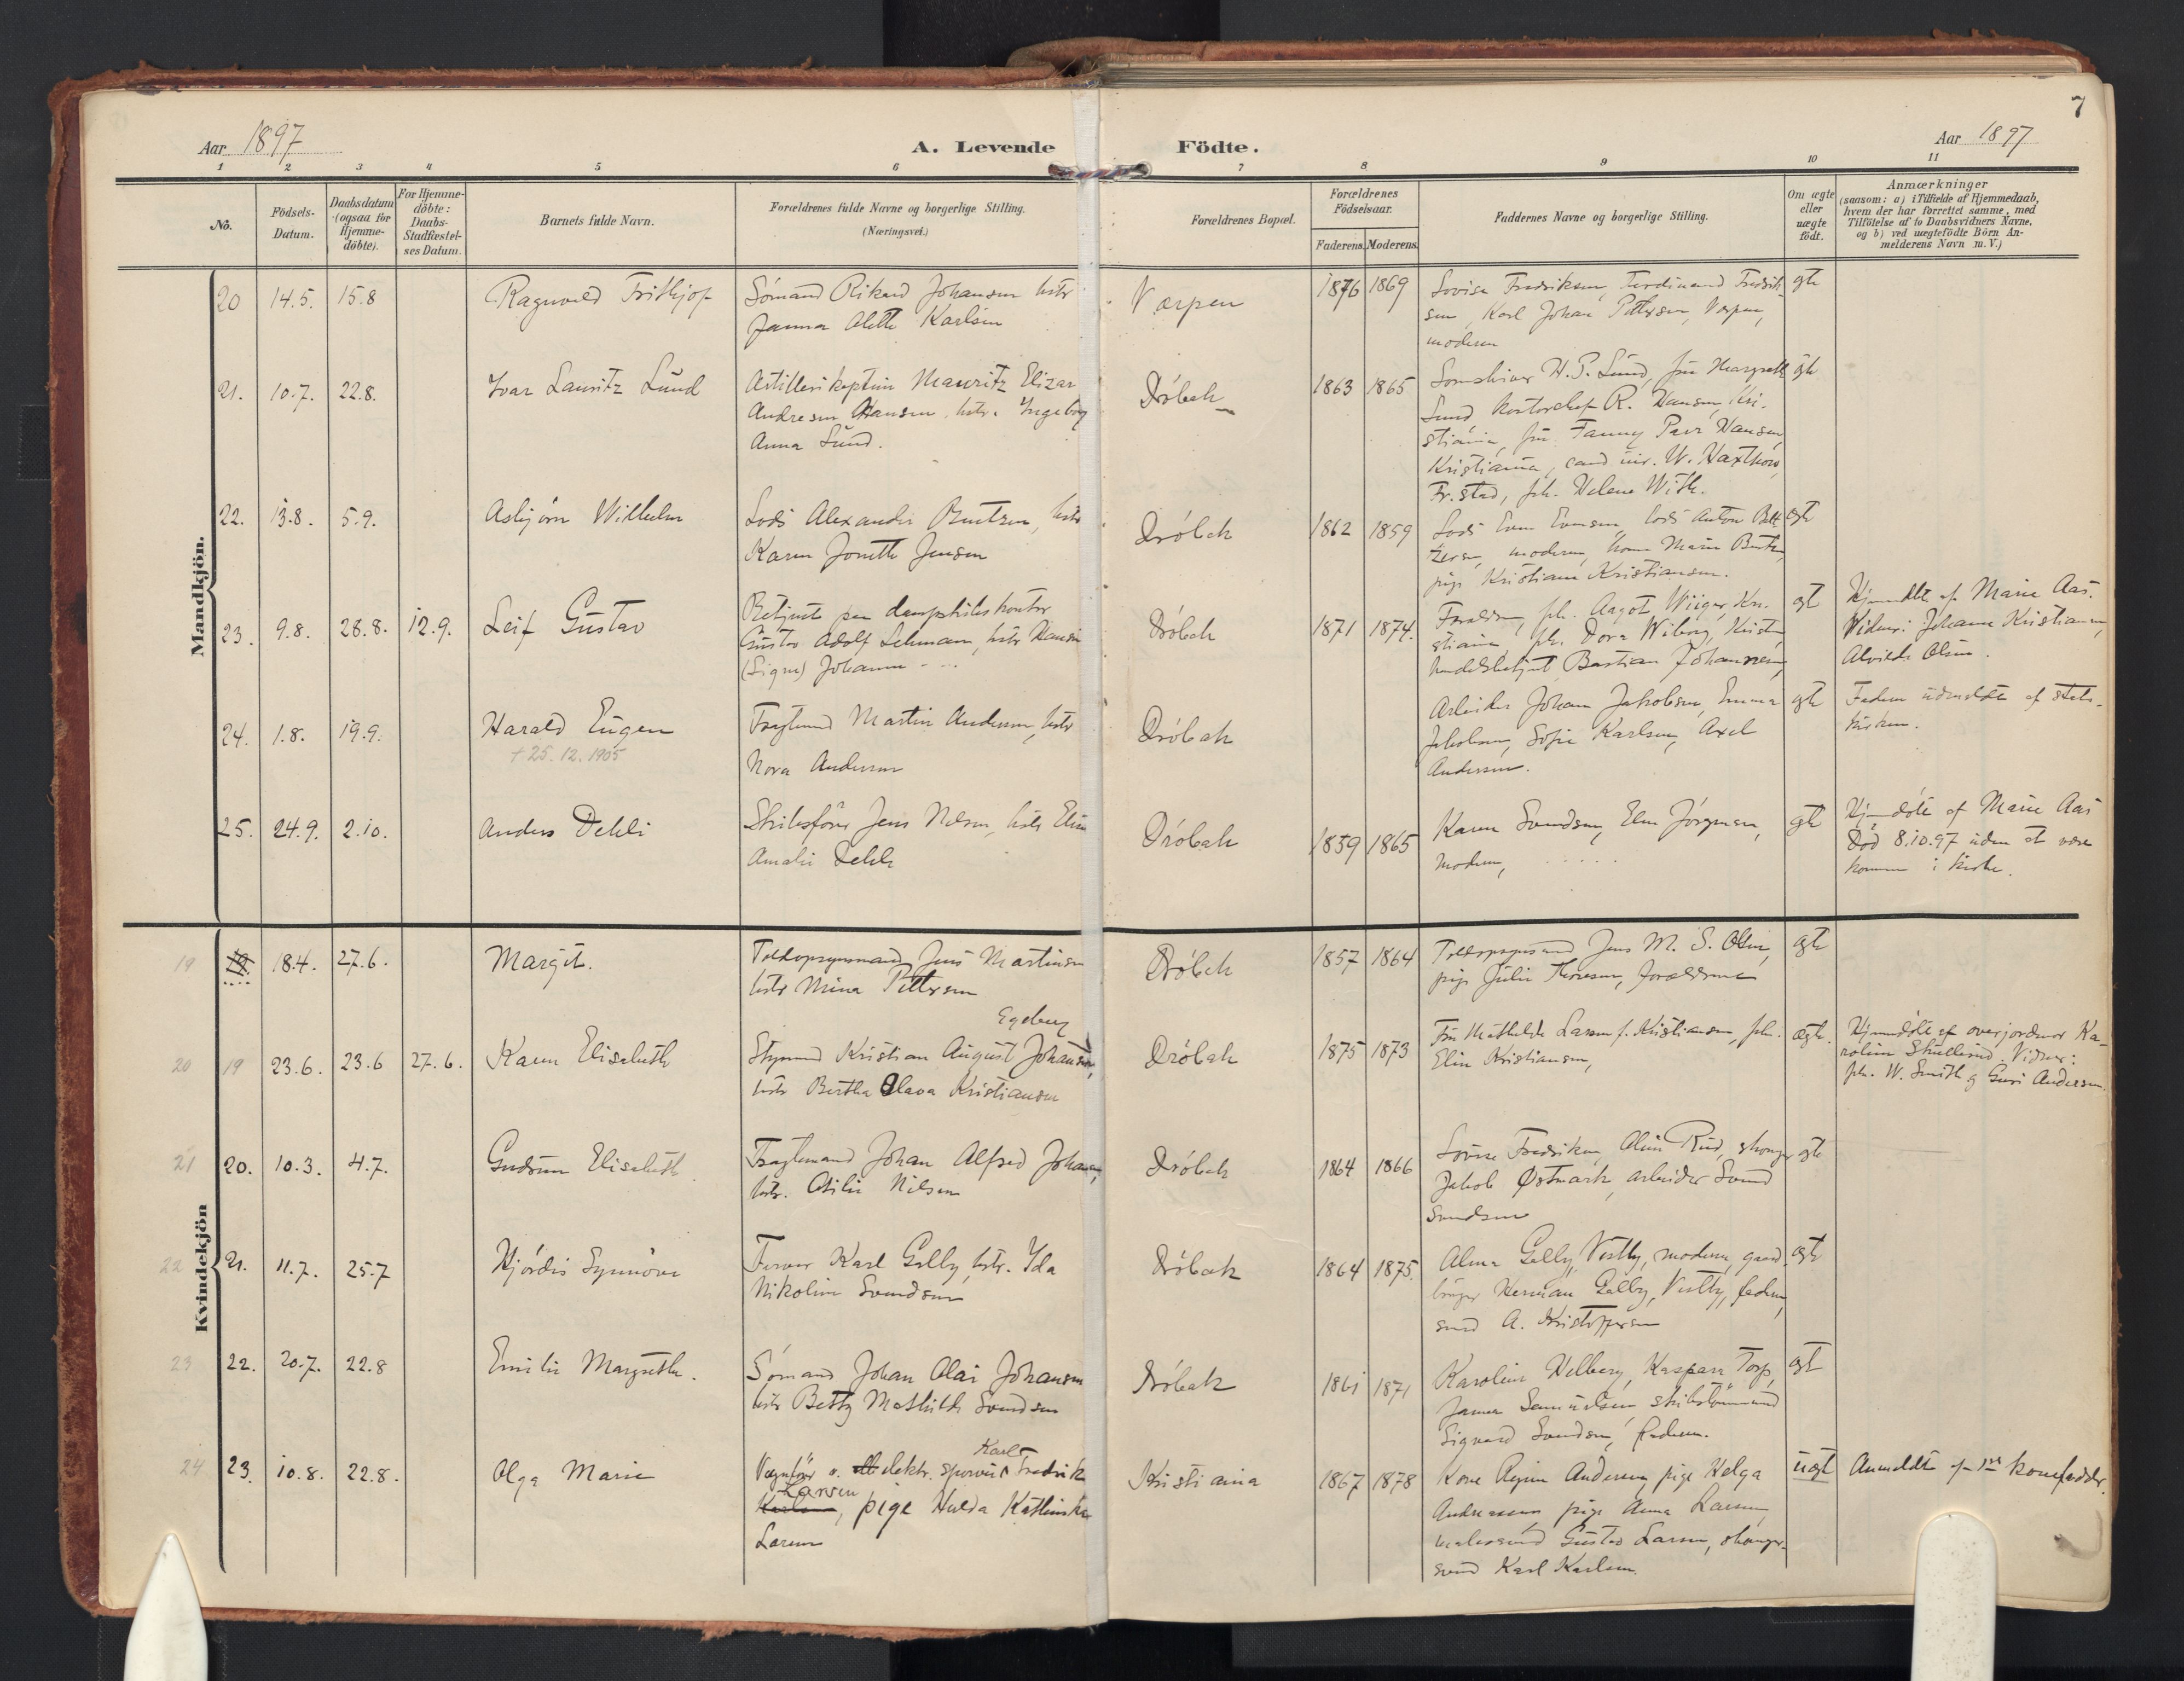 7
Aar 1897
A. Levende Födte.
Aar 1897
1 2 3 4 5 6 7 8 9 10 11
No.
Födsels-Datum.
Daabsdatum (ogsaa for Hjemme-döbte).
For Hjemme-döbte: Daabs-Stadfæstel-ses Datum.
Barnets fulde Navn.
Forældrenes fulde Navne og borgerlige Stilling.
(Næringsvei.)
Forældrenes Bopæl.
Forældrenes Födselsaar.
Faderens. Moderens.
Faddernes Navne og borgerlige Stilling.
Om ægte eller uægte födt.
Anmærkninger
(saasom: a) i Tilfælde af Hjemmedaab,
hvem der har forrettet samme, med
Tilföielse af to Daabsvidners Navne,
og b) ved uægtefödte Börn An-
melderens Navn m. V.)
Mandkjön.
20 14.5. 15.8 Ragnvald Frithjof
Sömand Rikard Johansen hstr
Janna Alette Karlsen
Værpen
1876 1869
Lovise Fredriksen, Ferdinand Fredrik-
sen, Karl Johan Pettersen, Værpen,
moderen
gte
21. 10.7. 22.8. Ivar Lauritz Lund
Artillerikaptein Mauritz Elizar
Andresen Hansen, hstr. Ingeborg
Anna Lund.
Dröbak
1863 1865
H. P. Lund, fru Margrethe
Lund kontorchef R. Hansen, Kri-
stiania, fru Fanny Hansen,
Kristiania, cand. W. Haxthow,
Fr.stad, frk. Helene With.
gte
22. 13.8. 5.9. Asbjörn Wilhelm
Lods Alexander Bentzen, hstr
Karen Jonette Jensen
Dröbak
1862 1859
Lods Even Evensen, lods Anton
moderen, kone Marie
pige Kristiane Kristiansen.
ægte
23. 9.8. 28.8. 12.9. Leif Gustav
Betjent paa dampskibskontor
Gustav Adolf Lehmann, hstr
(Signe) Johanne
Dröbak
1871 1874.
frk. Aagot Wiiger, Kri-
stiania, frk. Dora Wiborg, Kristia
handelsbetjent Bastian Johannesen,
gte
Hjemdöbt af Marie Aas.
Vidner: Johanne Kristiansen,
Alvilde Olsen.
24. 1.8. 19.9. Harald Eugen
† 25.12.1905
Fragtmand Martin Andersen, hstr
Nora Andersen
Dröbak
Arbeider Johan Jakobsen, Emma
Jakobsen, Sofie Karlsen, Axel
Andersen.
gte
Faderen udmeldt af stats-
kirken.
25. 24.9. 2.10. Anders Dehli
Skibsförer Jens Nelsen, hstr Elise
Amalie Dehli
Dröbak
1859 1865
Karen Svendsen, Elen Jörgensen,
moderen,
gte
Hjemdöbt af Marie Aas
Död 8.10.97 uden at være
kommen i kirke.
Kvindekjön
19 18.4. 27.6. Margit.
Toldopsynsmand Jens Martinsen
hstr Mina Pettersen
Dröbak
1857 1864
Toldopsynsmand Jens M. S. Olsen,
pige Julie Thoresen, forældrene
ægte
20 19 23.6. 23.6 27.6. Karen Elisabeth
Egeberg
Styrmand Kristian August Johansen,
hstr Bertha Olava Kristiansen
Dröbak
1875 1873
Fru Mathilde Larsen f. Kristiansen, frk.
Elise Kristiansen,
ægte.
Hjemmedöbt af overjordmor Ka-
roline Vidner:
frk. W. Smith og Guri Andersen.
21 20. 10.3. 4.7. Gudrun Elisabeth
Fragtmand Johan Alfred Johansen,
hstr. Otilie Nilsen
Dröbak
1864 1866
Lovise Fredriksen, Oline Rud,
Jakob Østmark, arbeider Svend
Svendsen
gte
22 21. 11.7. 25.7 Hjördis Synnöve
Farver Karl Galby, hstr. Ida
Nikoline Svendsen
Dröbak
1864 1875.
Alma Galby, Vestby, moderen, gaard-
bruger Herman Galby, Vestby, faderen,
svend A. Kristoffersen
ægte
23 22. 20.7. 22.8 Emilie Margrethe.
Sömand Johan Olai Johansen
hstr Betty Mathilde Svendsen
Dröbak
1861 1871
Karoline Helberg, Kaspara Torp,
Janna Samuelsen skibstömmermand
Sigvard Svendsen, faderen.
ægt
24 23. 10.8. 22.8. Olga Marie
Vognförer v. elektr. sporvei Karl Fredrik
Larsen, pige Hulda Kathinka
Larsen
Kristiania
1867 1878
Kone Regine Andersen, pige Helga
Andreassen pige Anna Larsen,
malersvend Gustav Larsen,
svend Karl Karlsen.
uægt
Anmeldt af 1ste konefadder.